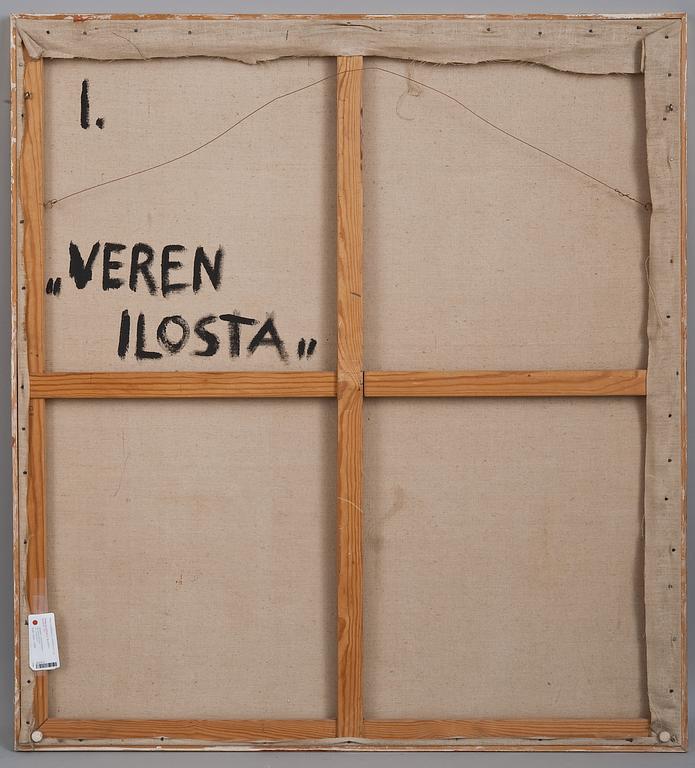 I.
„VEREN
ILOSTA„